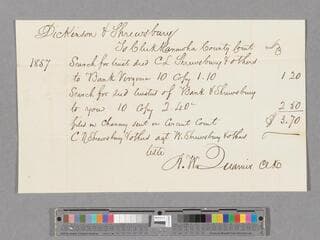 Dickinson & Shrewsbury
To Clerk Kanawha County Court Dr
1857 Search for trust deed C. Shrewsbury & others
to Bank Virginia 10 Copy 1.10 1.20
Search for deed trustees of Bank & Shrewsbury
to your 10 Copy 2.40 2.50
files in Chancery sent in Circuit Court $ 3.70
C Shrewsbury & others agt W. Shrewsbury & others
A. W. Quarrier